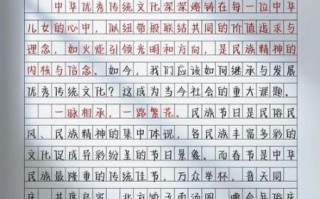 中华优秀传统文化深深烙铸在每一位中华
儿女的心中，似纽带般联结共同的价值追求与
理念，如火炬引领光明和方向，是民族精神的
内核与信念。如今，我们应该如何继承与发展
优秀传统文化？这成为当今社会的重大课题。
一脉相承，一路繁花。民族节日是民俗民
风、民族精神的集中体现。各民族丰富多彩的
文化促成异彩纷呈的节日景象。而春节是中华
民族最隆重的传统佳节，万众举杯，普天同